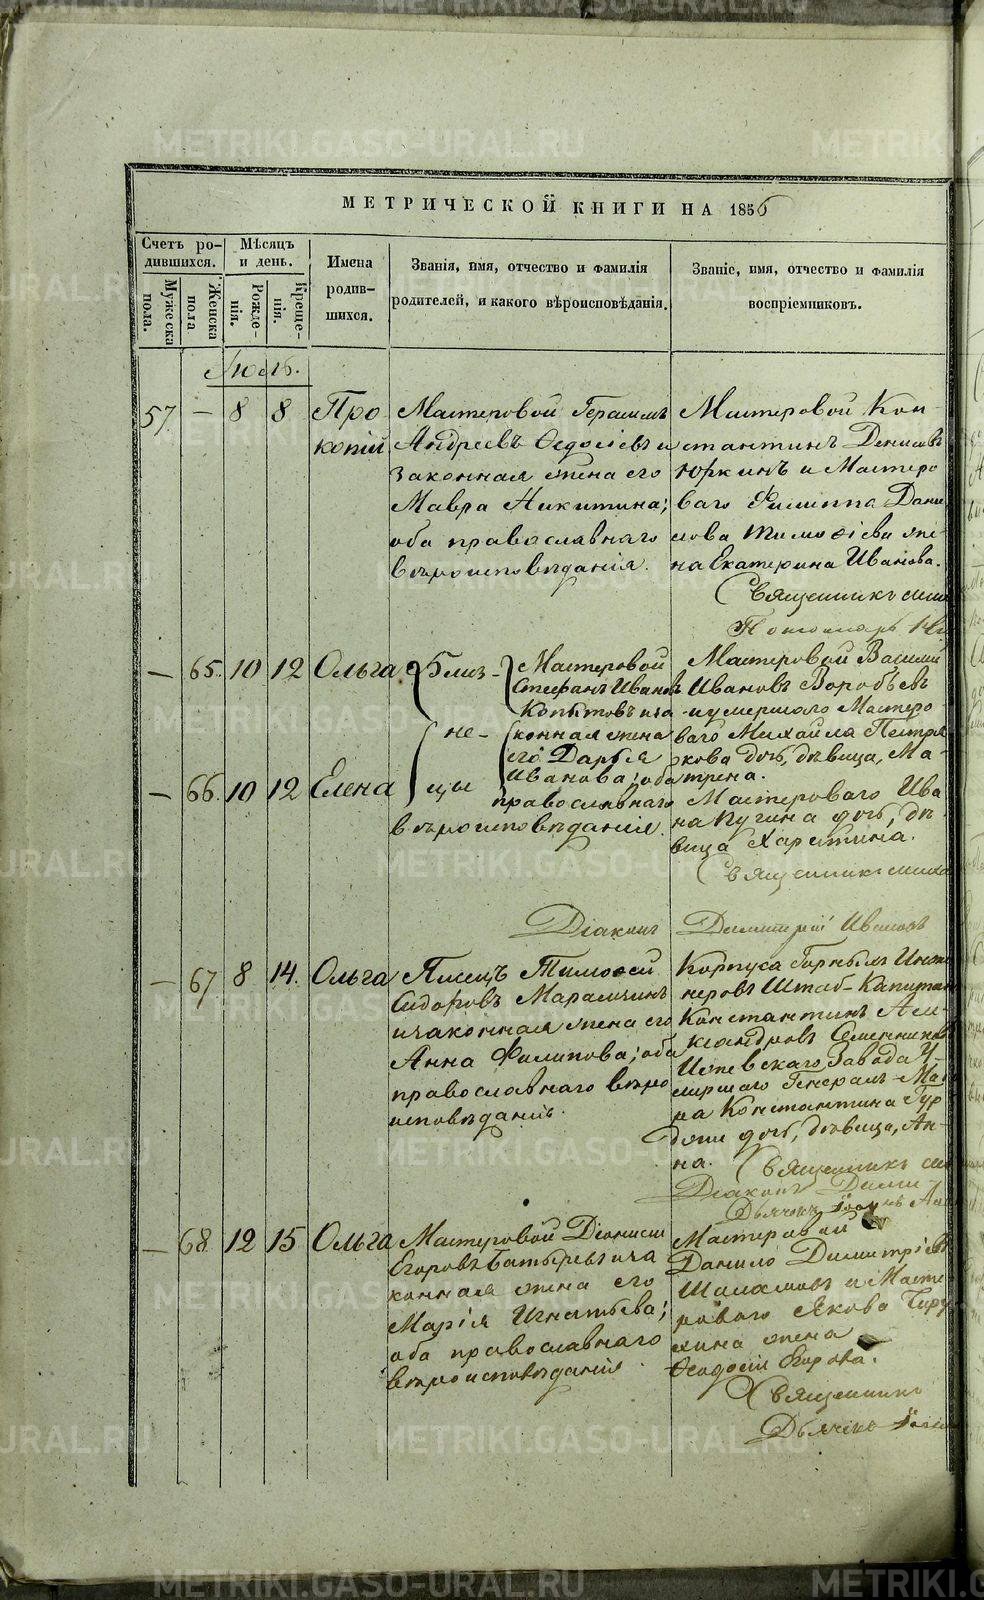 МЕТРИЧЕСКОЙ КНИГИ НА 1856
Счетъ родившихся.
Мужеска пола.
Женска пола
Мѣсяцъ и день.
Рожденія.
Крещенія.
Имена родившихся.
Званія, имя, отчество и фамилія
родителей, и какого вѣроисповѣданія.
Званіе, имя, отчество и фамилія
воспріемниковъ.
Іюль.
57. — 8 8 Про
копій
Мастеровой Герасимъ
Андреевъ Ѳедосіевъ и
законная жена его
Мавра Никитина;
оба православнаго
вѣроисповѣданія.
Мастеровой Кон-
стантинъ Денисовъ
Юркинъ и Мастеро
ваго Филиппа Дани
лова Тимоѳіева же-
на Екатерина Иванова.
Священникъ
Пономарь
— 65. 10 12 Ольга
— 66. 10 12 Елена
Близ-
не-
цы
Мастеровой
Стефанъ Ивановъ
Копытовъ и за
конная жена
его Дарья
Иванова; оба
православнаго
вѣроисповѣданія.
Мастеровой Василий
Ивановъ Воробьевъ
и умершаго Мастеро-
ваго Михаила Пестря
кова дочь, дѣвица, Ма-
трена.
Мастероваго Ива
на Пугина дочь, дѣ-
вица Харитина.
Священникъ
Діаконъ Димитрій Ивановъ
— 67 8 14. Ольга
Ямецъ Тимоѳей
Сидоровъ
и законная жена его
Анна Филипова; оба
православнаго вѣро
исповѣданія.
Корпуса Горныхъ Инже
неровъ Штабъ-Капитан
Константинъ Але-
ксандровъ
Ижевскаго Завода У-
мершаго Генералъ-Маіо
ра Константина
дочь, дѣвица, Ан-
на. Священникъ
Діаконъ Дими
Дьячокъ Іоаннъ
— 68 12 15 Ольга
Мастеровой Діонисій
Егоровъ Батыревъ и за
конная жена его
Марія Игнатьева;
оба православнаго
вѣроисповѣданія
Мастеровой
Данило Димитріевъ
и Масте
роваго Якова
жена
Ѳеодосія Егорова.
Священникъ
Дьячокъ
METRIKI.GASO-URAL.RU